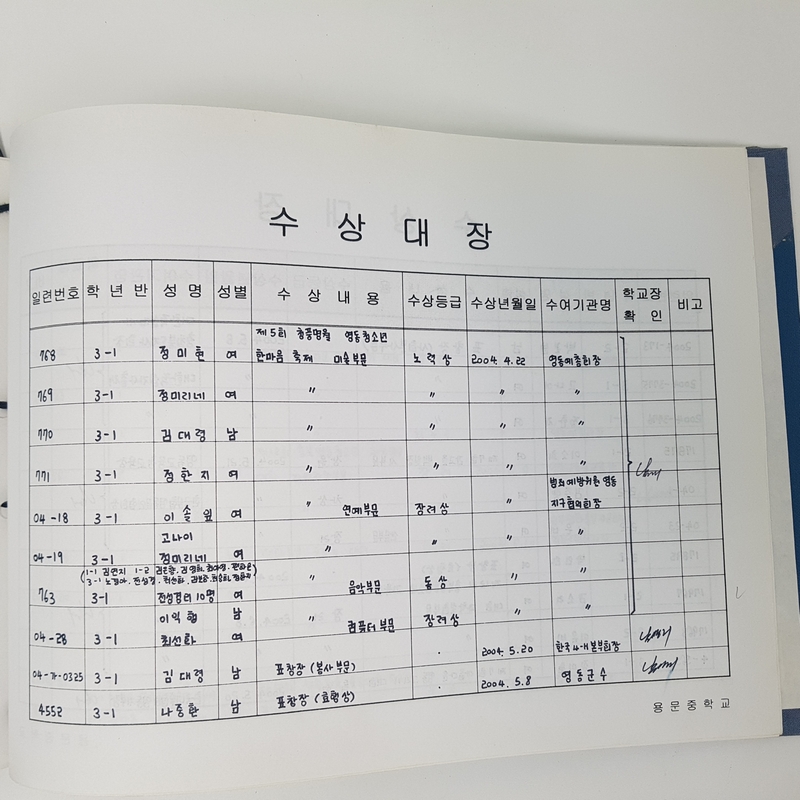 수 상 대 장
일련번호 학 년 반 성 명 성별 수 상 내 용 수상등급 수상년월일 수여기관명 학교장 확 인 비고
제5회 청풍명월 영동청소년
768 3-1 정미현 여 한마음 축제 미술부문 노력상 2004. 4. 22 영동예총회장
769 3-1 정미리네 여 〃 〃 〃 〃
770 3-1 김대령 남 〃 〃 〃 〃
771 3-1 정한지 여 〃 〃 〃 〃
범죄예방위원 영동
04-18 3-1 이솔잎 여 〃 연예부문 장려상 〃 지구협의회장
고나이
04-19 3-1 정미리네 여 〃 〃 〃 〃
(1-1 김연지 1-2
3-1
763 3-1 전성경외 10명 여 〃 음악부문 동상 〃 〃
이익협 남
04-28 3-1 최선화 여 〃 컴퓨터부문 장려상 〃 〃
04-가-0325 3-1 김대령 남 표창장 (봉사부문) . 2004. 5. 20 한국4-H본부회장
4552 3-1 나중환 남 표창장 (효행상) . 2004. 5. 8 영동군수
용문중학교